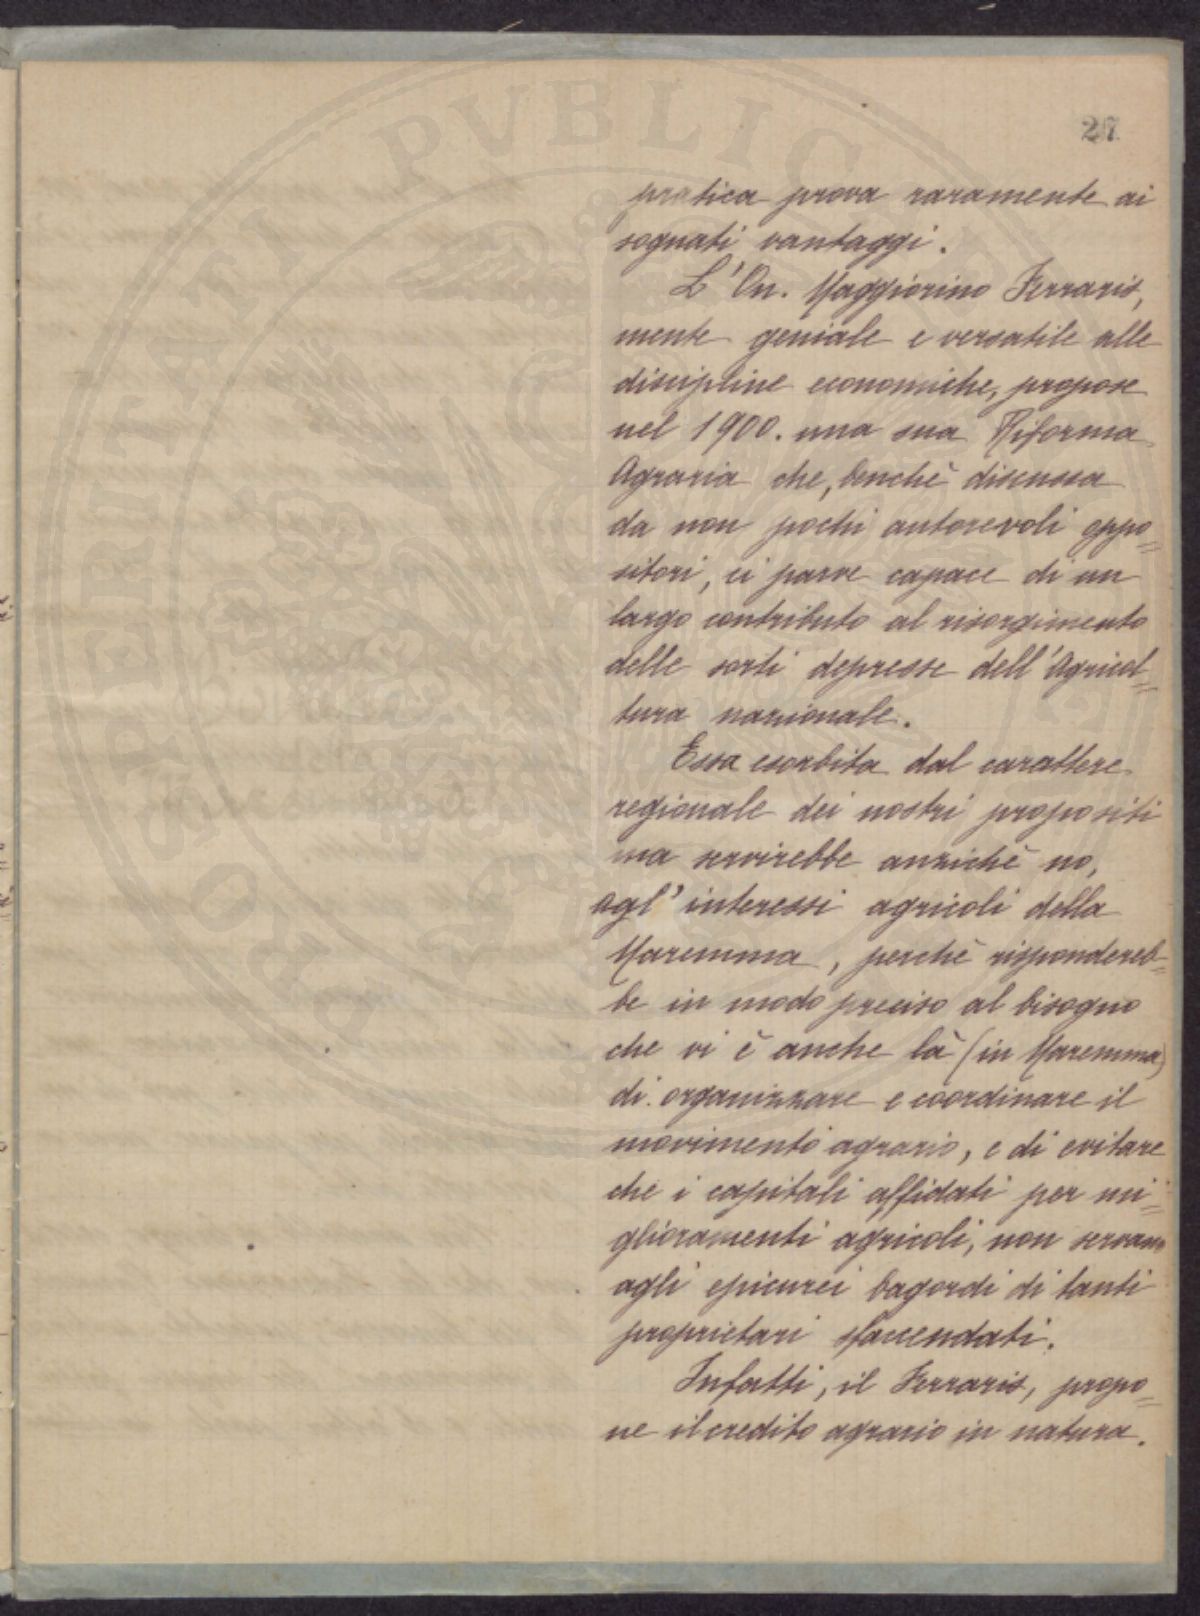 27
pratica prova raramente ai
sognati vantaggi.
L'On. Maggiorino Ferraris,
mente geniale e versatile alle
discipline economiche, propose
nel 1900. una sua Riforma
Agraria che, benchè discussa
da non pochi autorevoli oppo=
sitori, ci parve capace di un
largo contributo al risorgimento
delle sorti depresse dell'Agricol=
tura nazionale.
Essa esorbita dal carattere
regionale dei nostri propositi
ma servirebbe anzichè no,
agl' interessi agricoli della
Maremma, perchè rispondereb=
be in modo preciso al bisogno
che vi è anche là (in Maremma)
di organizzare e coordinare il
movimento agrario, e di evitare
che i capitali affidati per mi=
glioramenti agricoli, non servano
agli epicurei bagordi di tanti
proprietari sfaccendati.
Infatti, il Ferraris, propo=
ne il credito agrario in natura.